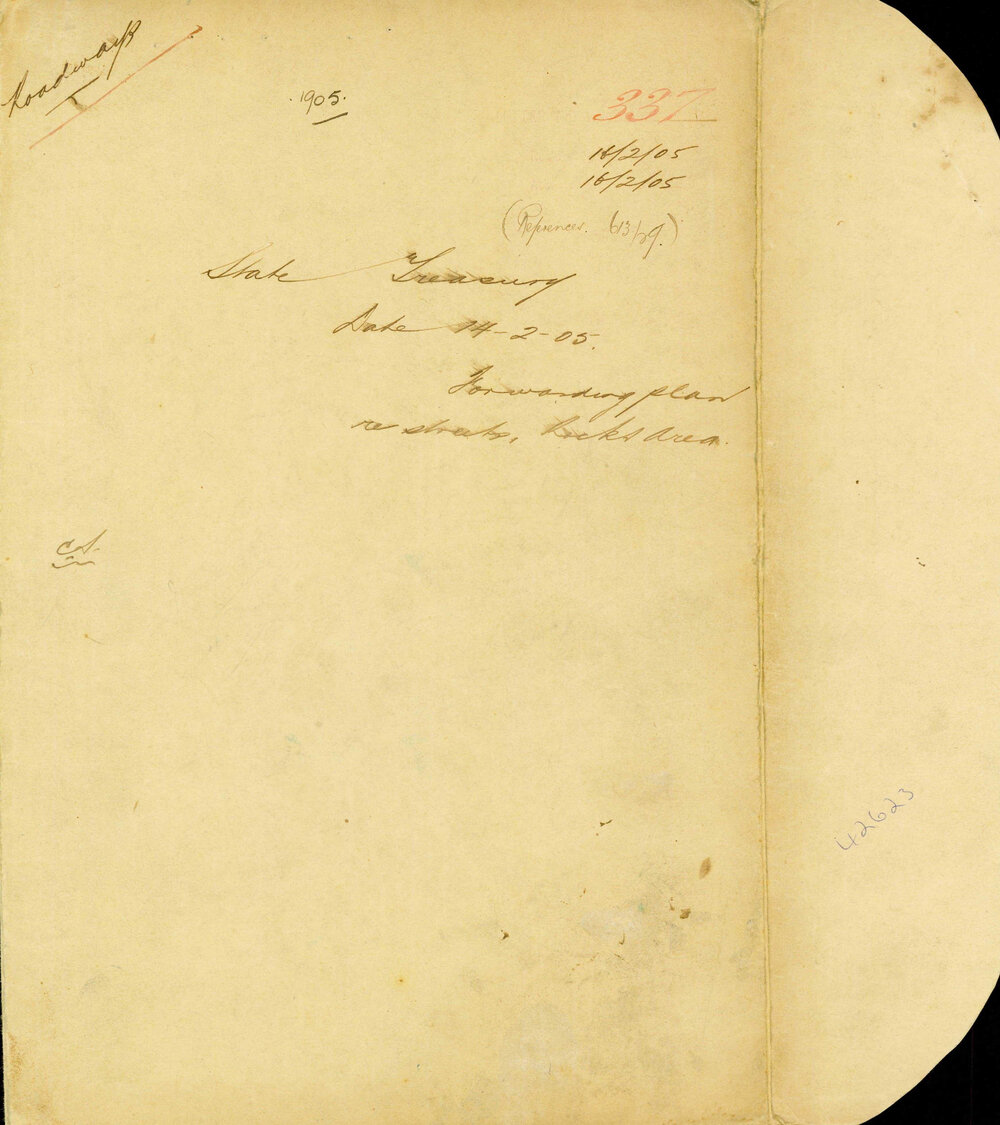 Roadways
1905.
337
16/2/05
16/2/05
State Treasury
Date 14-2-05.
Forwarding plan
re streets, Rocks Area.
42623